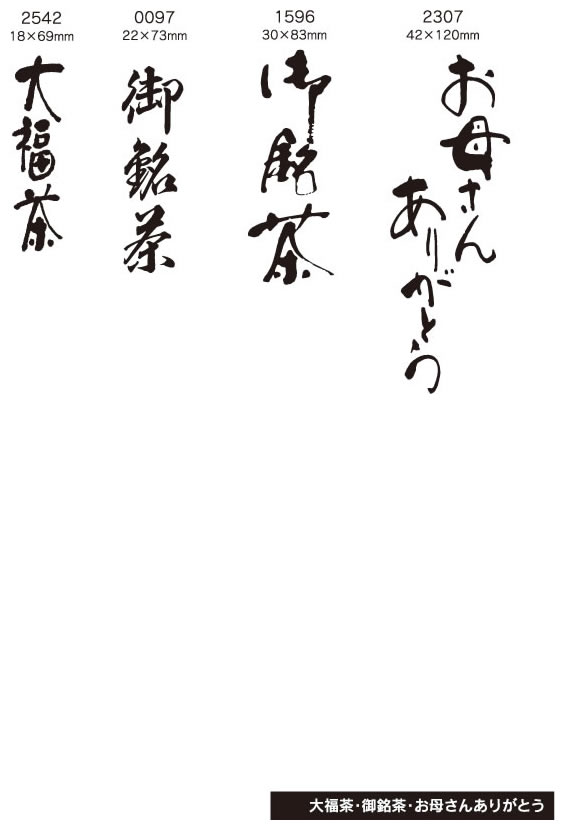 2542
18×69mm
大福茶
0097
22×73mm
御銘茶
1596
30×83mm
御銘茶
2307
42×120mm
お母さん
ありがとう
大福茶・御銘茶・お母さんありがとう